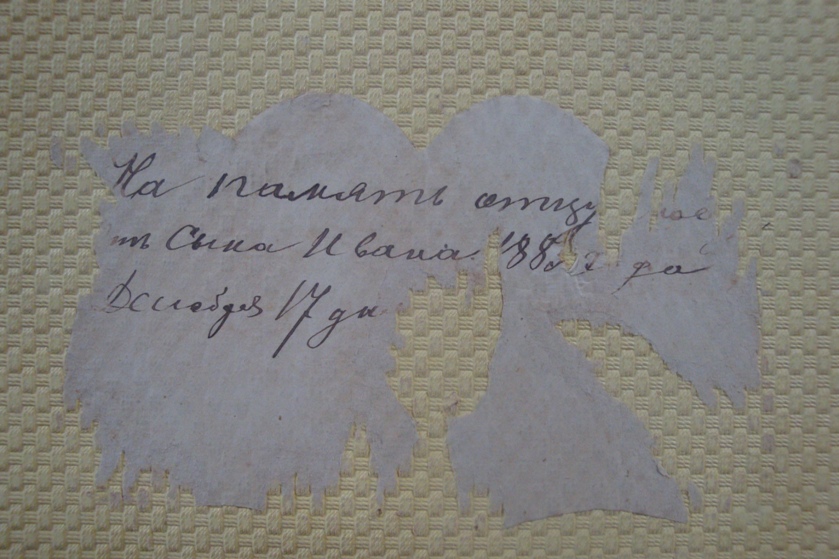 На память отцу
Сына Ивана
Декабря 17 дн